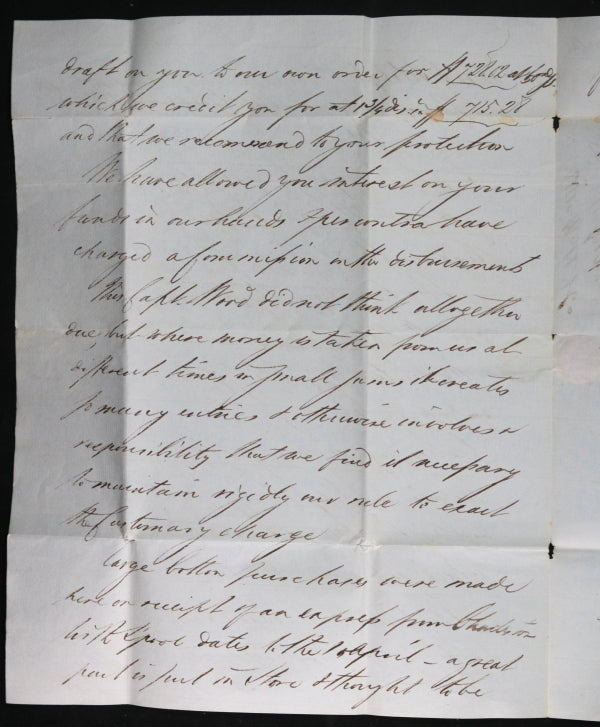 draft on you to our own order for $ 726.12 at
which we credit you for at 1¾ dis in $ 715.28
and that we recommend to your protection
We have allowed you interest on your
funds in our hands & per contra have
charged a Commission on the disbursements
This Capt. Wood did not think altogether
due, but where money is taken from us at
different times in small sums it creates
so many entries & otherwise involves a
responsibility that we find it necessary
to maintain rigidly our rule to exact
the Customary charge
Large Cotton purchases were made
here on receipt of an express from Charleston
with L'pool dates to the April – a great
part is put in Store & thought to be